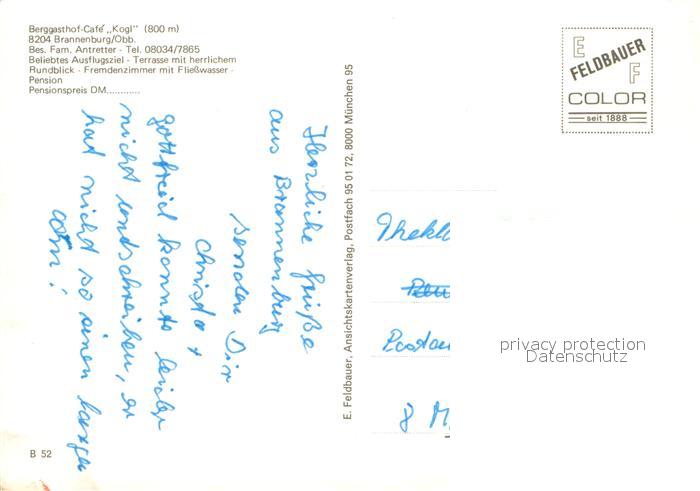 Berggasthof-Café „Kogl" (800 m)
8204 Brannenburg/Obb.
Bes. Fam. Antretter - Tel. 08034/7865
Beliebtes Ausflugsziel - Terrasse mit herrlichem
Rundblick - Fremdenzimmer mit Fließwasser -
Pension
Pensionspreis DM............
Herzliche Grüße
aus Brannenburg
senden Dir
Christa +
gottfried konnte leider
nicht
hat nicht so einen langen
Arm!
B 52
E. Feldbauer, Ansichtskartenverlag, Postfach 95 01 72, 8000 München 95
E
FELDBAUER
F
COLOR
seit 1888
Thekl
8 M
privacy protection
Datenschutz